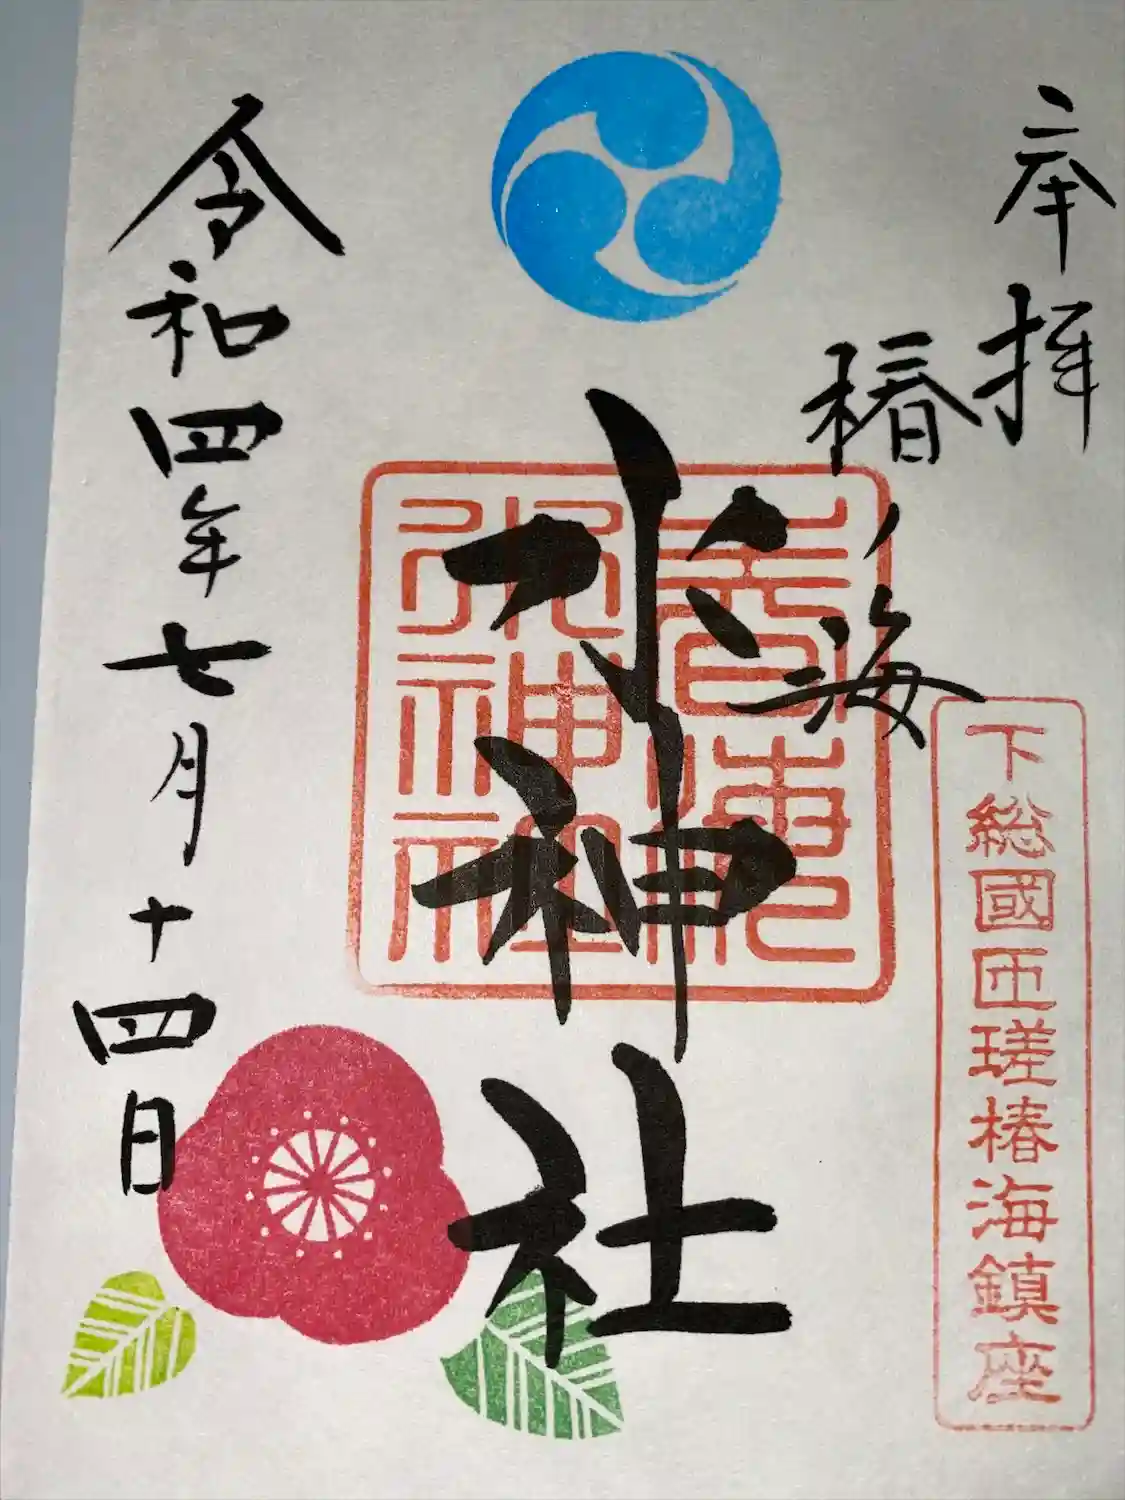 奉拝
椿ノ海
下総國匝瑳椿海鎮座
水神社
椿海
水神社
令和四年七月十四日